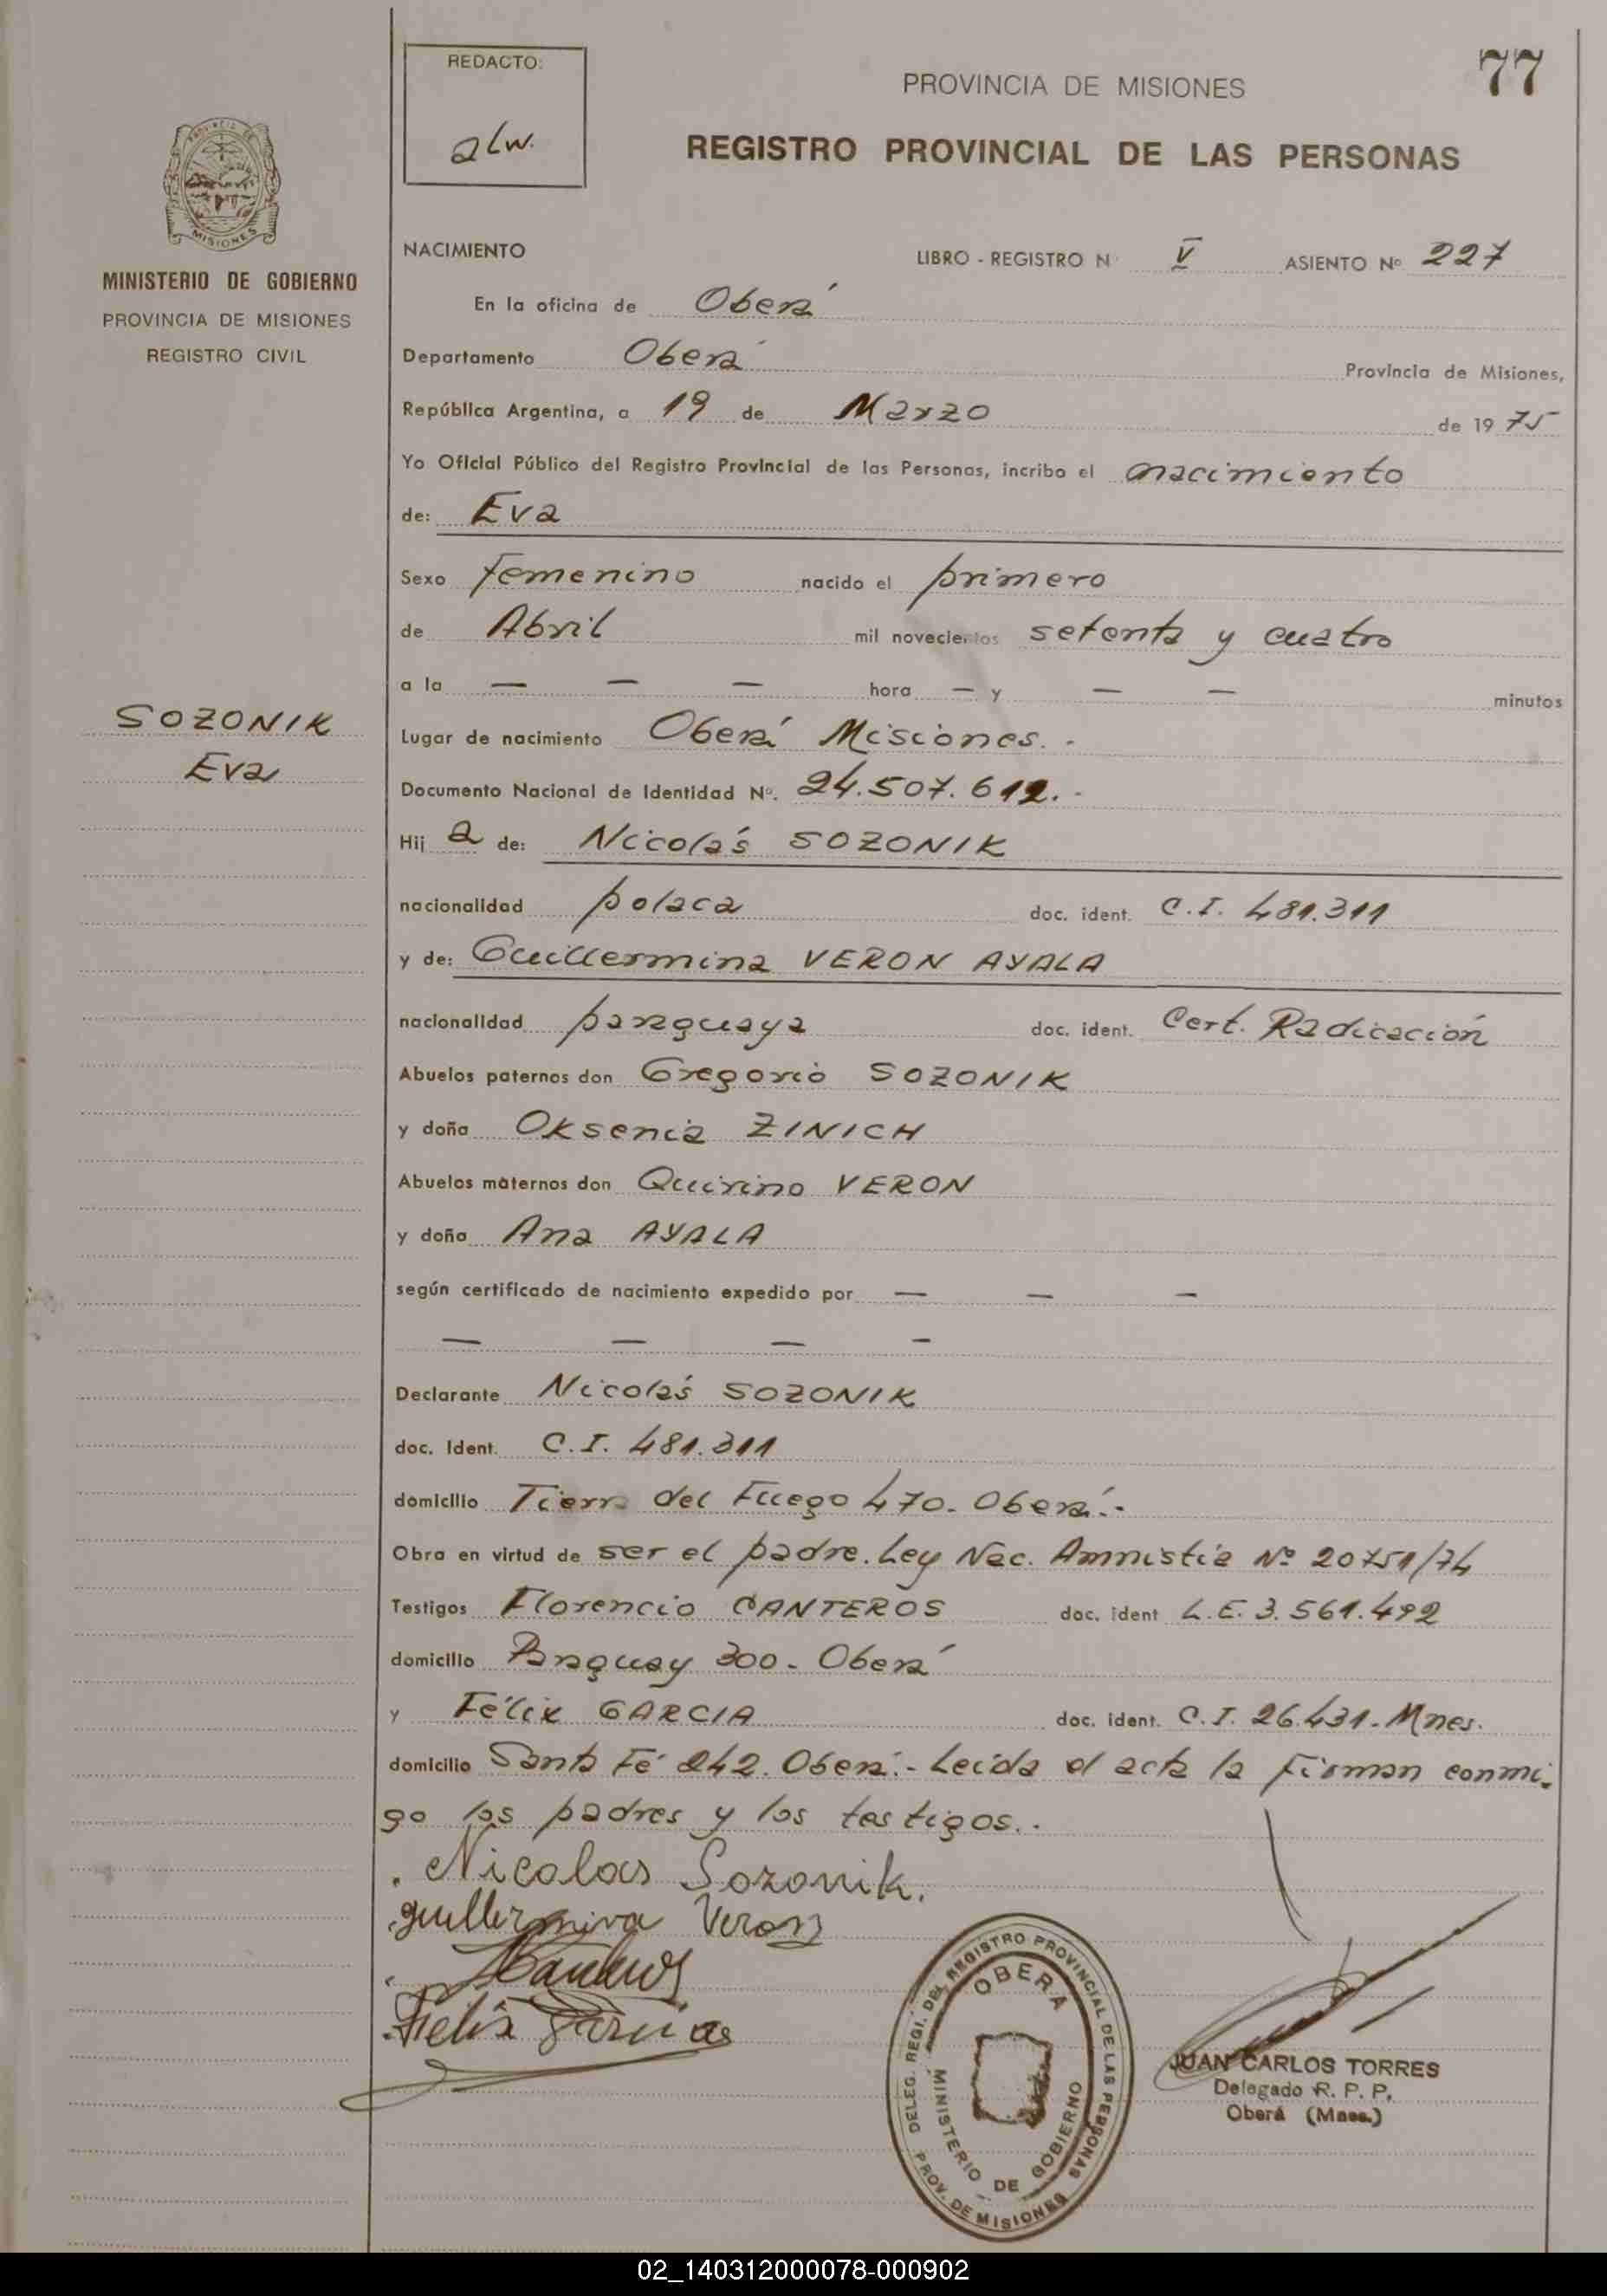 REDACTO:
alw.
77
PROVINCIA DE MISIONES
REGISTRO PROVINCIAL DE LAS PERSONAS
MISIONES
MINISTERIO DE GOBIERNO
PROVINCIA DE MISIONES
REGISTRO CIVIL
NACIMIENTO LIBRO - REGISTRO N V ASIENTO Nº 227
En la oficina de Oberá
Departamento Oberá Provincia de Misiones,
República Argentina, a 19 de Marzo de 1975
Yo Oficial Público del Registro Provincial de las Personas, incribo el nacimiento
de: Eva
Sexo femenino nacido el primero
de Abril mil novecientos setenta y cuatro
a la — — — hora — y — — minutos
SOZONIK
Eva
Lugar de nacimiento Oberá Misiones.-
Documento Nacional de Identidad Nº. 24.507.612.-
Hij a de: Nicolás SOZONIK
nacionalidad polaca doc. ident. C.I. 481.311
y de: Guillermina VERON AYALA
nacionalidad paraguaya doc. ident. Cert. Radicación
Abuelos paternos don Gregorio SOZONIK
y doña Oksenia ZINICH
Abuelos maternos don Quirino VERON
y doña Ana AYALA
según certificado de nacimiento expedido por — — —
— — — —
Declarante Nicolás SOZONIK
doc. Ident. C.I. 481.311
domicilio Tierra del Fuego 470. Oberá.-
Obra en virtud de ser el padre. Ley Nac. Amnistia Nº 20751/74
Testigos Florencio CANTEROS doc. ident L.E. 3.561.492
domicilio Paraguay 300. Oberá
y Félix GARCIA doc. ident. C.I. 26.431. Mnes.
domicilio Santa Fé 242. Oberá.- Leída el acta la firman conmi-
go los padres y los testigos..
Nicolas Sozonik.
guillermina Veron
Felix Garcia
DELEG. REGI. DEL REGISTRO PROVINCIAL DE LAS PERSONAS
OBERA
MINISTERIO DE GOBIERNO
PROV. DE MISIONES
JUAN CARLOS TORRES
Delegado R. P. P.
Oberá (Mnes.)
02_140312000078-000902